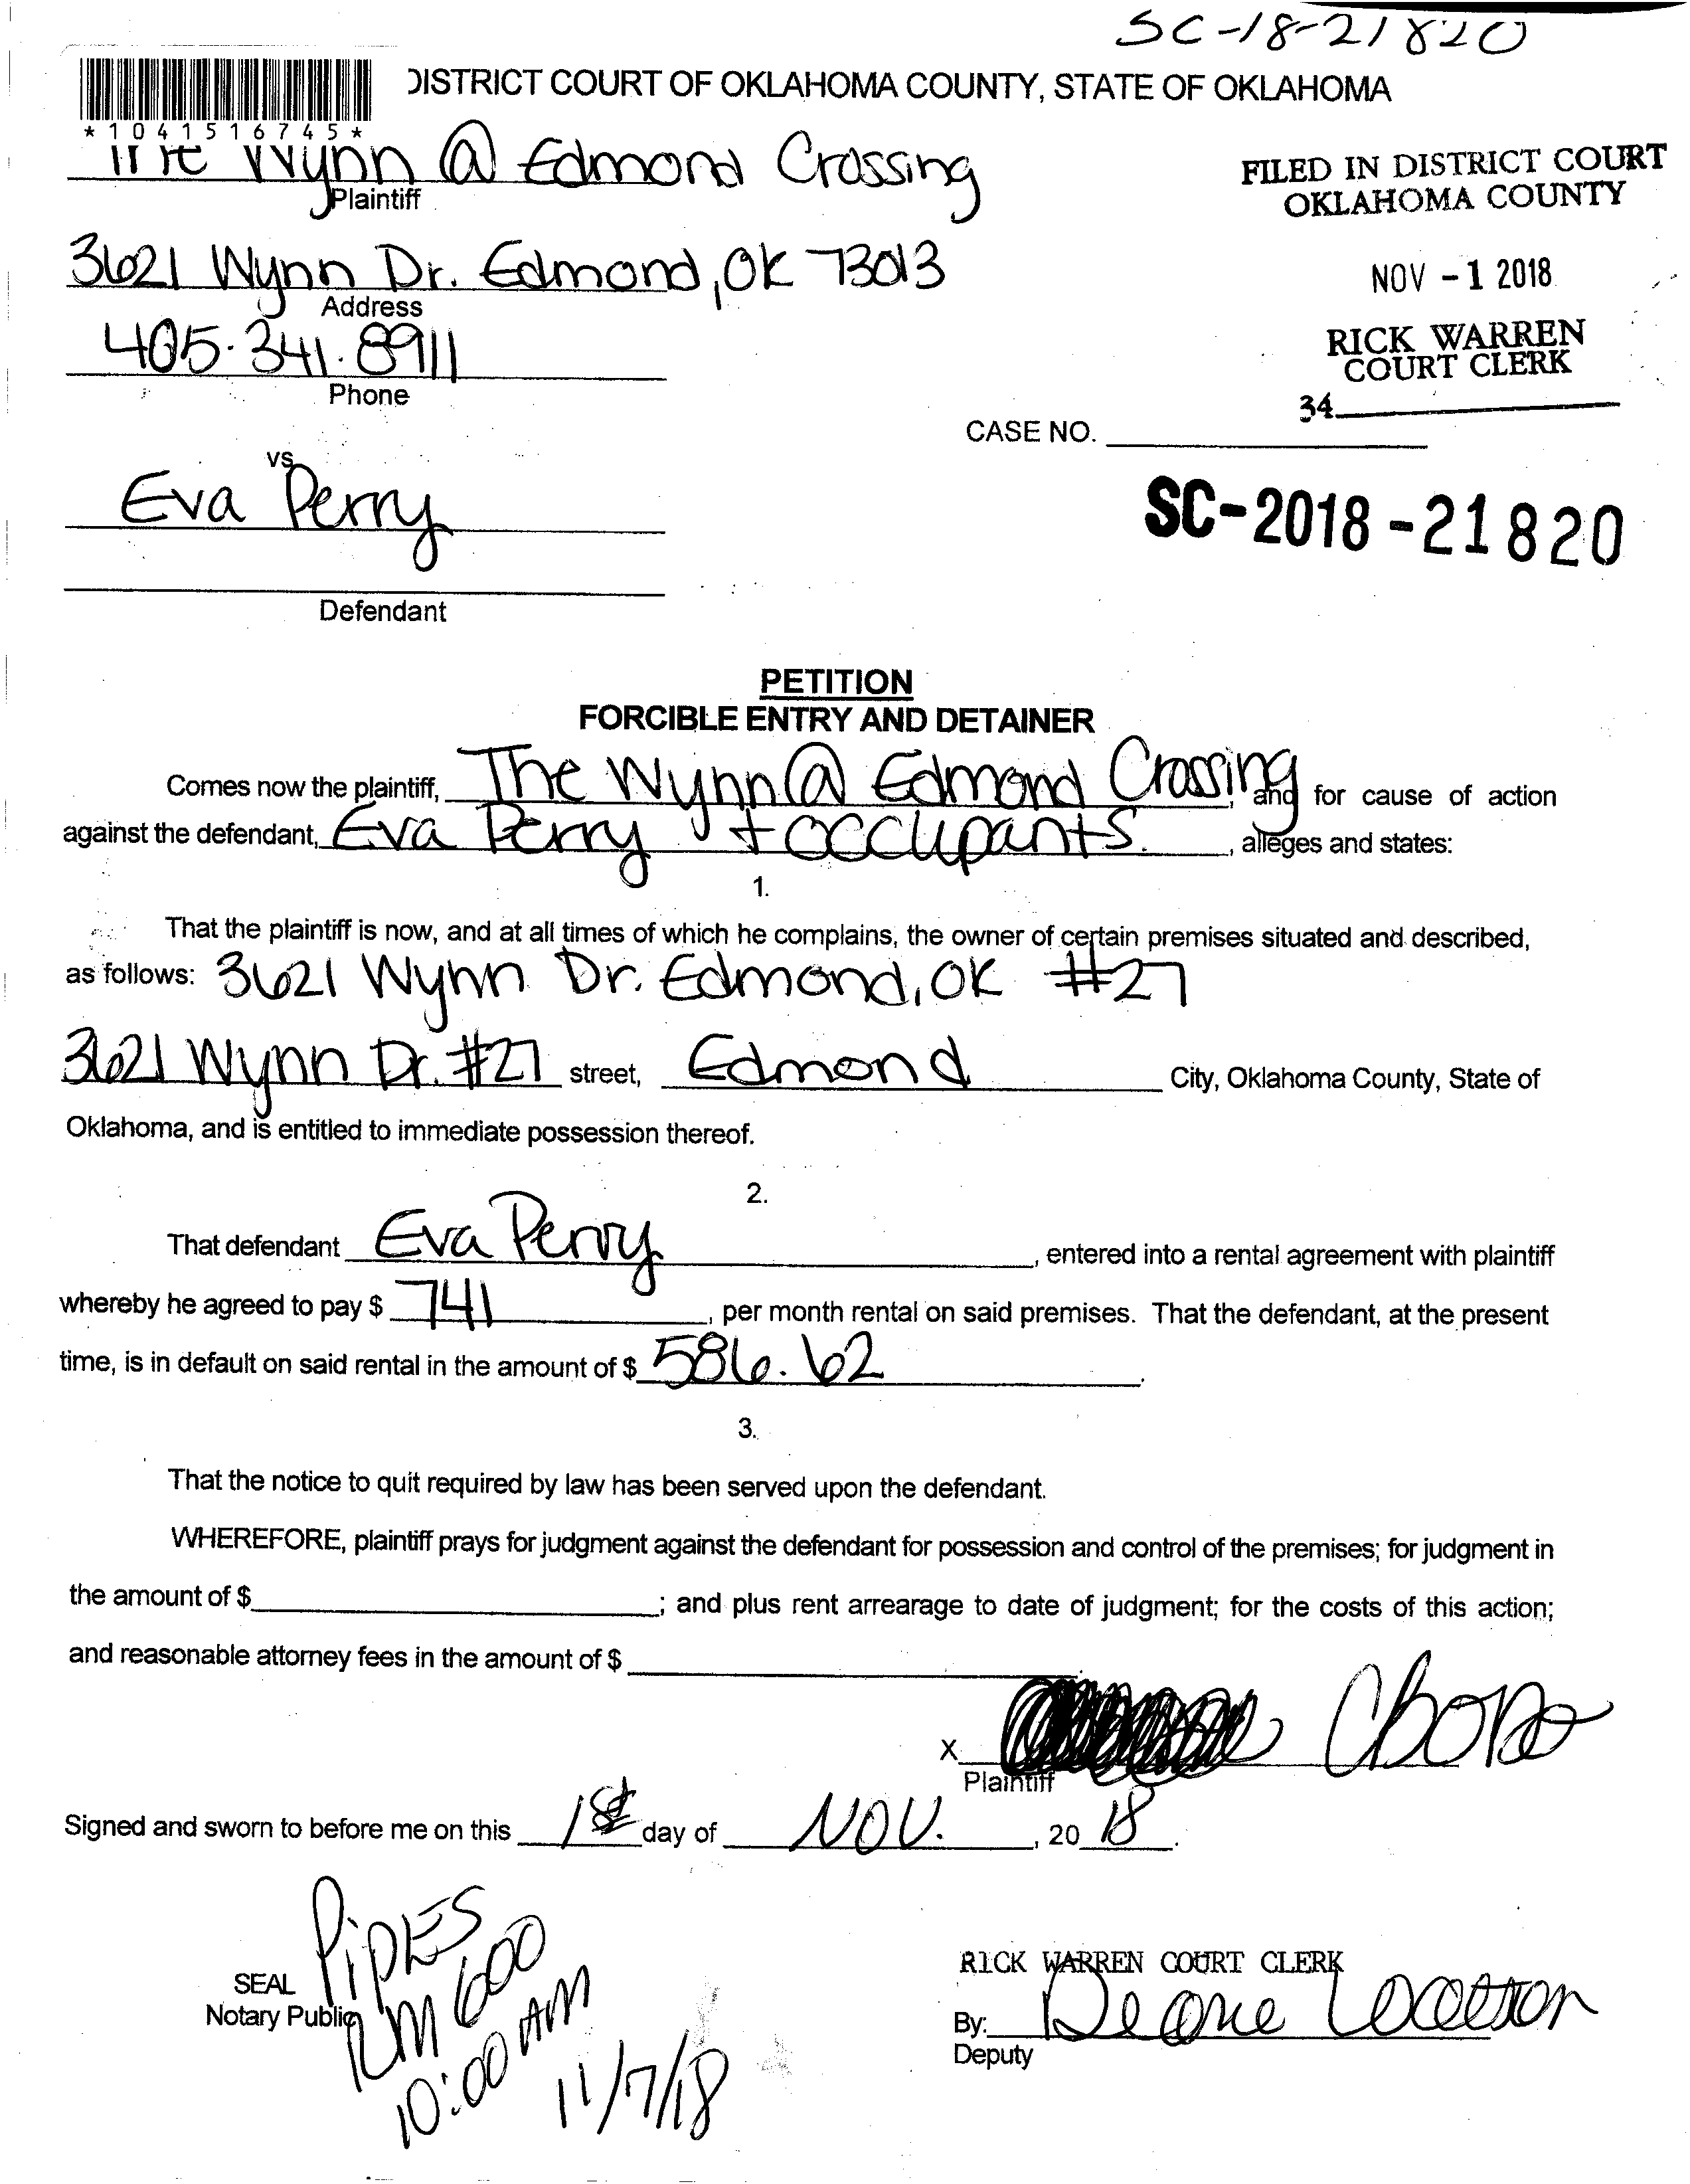 SC-18-21820
DISTRICT COURT OF OKLAHOMA COUNTY, STATE OF OKLAHOMA
*1041516745*
The Wynn @ Edmond Crossing
Plaintiff
FILED IN DISTRICT COURT
OKLAHOMA COUNTY
3621 Wynn Dr. Edmond, OK 73013
Address
NOV - 1 2018
405.341.8911
Phone
RICK WARREN
COURT CLERK
34
CASE NO.
vs.
Eva Perry
SC-2018-21820
Defendant
PETITION
FORCIBLE ENTRY AND DETAINER
Comes now the plaintiff, The Wynn @ Edmond Crossing, and for cause of action
against the defendant, Eva Perry + occupants., alleges and states:
1.
That the plaintiff is now, and at all times of which he complains, the owner of certain premises situated and described,
as follows: 3621 Wynn Dr. Edmond, OK #27
3621 Wynn Dr. #27 street, Edmond City, Oklahoma County, State of
Oklahoma, and is entitled to immediate possession thereof.
2.
That defendant Eva Perry, entered into a rental agreement with plaintiff
whereby he agreed to pay $ 741, per month rental on said premises. That the defendant, at the present
time, is in default on said rental in the amount of $ 586.62.
3.
That the notice to quit required by law has been served upon the defendant.
WHEREFORE, plaintiff prays for judgment against the defendant for possession and control of the premises; for judgment in
the amount of $ ; and plus rent arrearage to date of judgment; for the costs of this action;
and reasonable attorney fees in the amount of $
X
Plaintiff
Signed and sworn to before me on this 1st day of NOV., 20 18.
PiPES
RM 600
10:00 AM
11/7/18
SEAL
Notary Public
RICK WARREN COURT CLERK
By:
Deputy